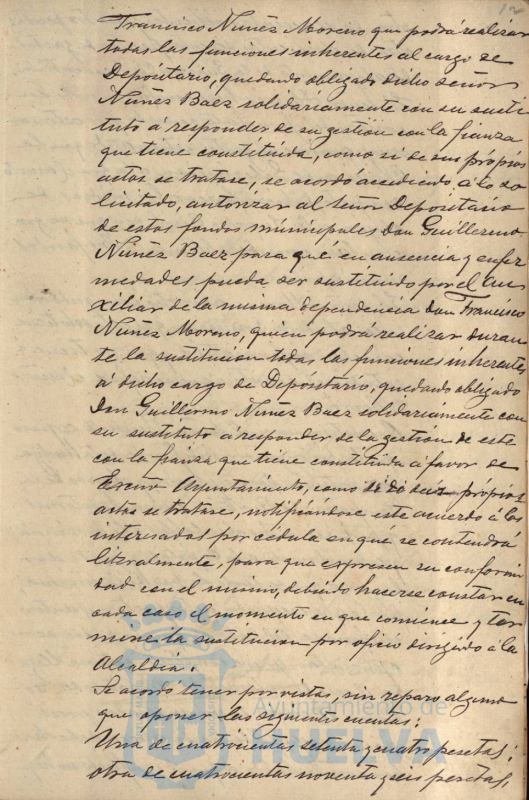 12
Francisco Nuñez Moreno que podrá realizar
todas las funciones inherentes al cargo de
Depositario, quedando obligado dicho señor
Nuñez Baez solidariamente con su susti
tuto á responder de su gestion con la fianza
que tiene constituida, como si de sus própios
actos se tratase, se acordó accediendo á lo so
licitado, autorizar al Señor Depositario
de estos fondos municipales Don Guillermo
Nuñez Baez para que en ausencia y enfer
medades pueda ser sustituido por el Au
xiliar de la misma dependencia don Francisco
Nuñez Moreno, quien podrá realizar duran
te la sustitucion todas las funciones inherentes
á dicho cargo de Depositario, quedando obligado
Don Guillermo Nuñez Baez solidariamente con
su sustituto á responder de la gestión de este
con la fianza que tiene constituida á favor de
Excmo Ayuntamiento, como si de sus própios
actos se tratase, notificándose este acuerdo á los
interesados por cédula en que se contendrá
literalmente, para que expresen su conformi
dad con el mismo, debiendo hacerse constar en
cada caso el momento en que comience y ter
mine la sustitucion por oficio dirigido á la
Alcaldia.
Se acordó tener por vistas, sin reparo alguno
que oponer las siguientes cuentas:
Una de cuatrocientas setenta y cuatro pesetas;
otra de cuatrocientas noventa y seis pesetas,
Ayuntamiento de
HUELVA